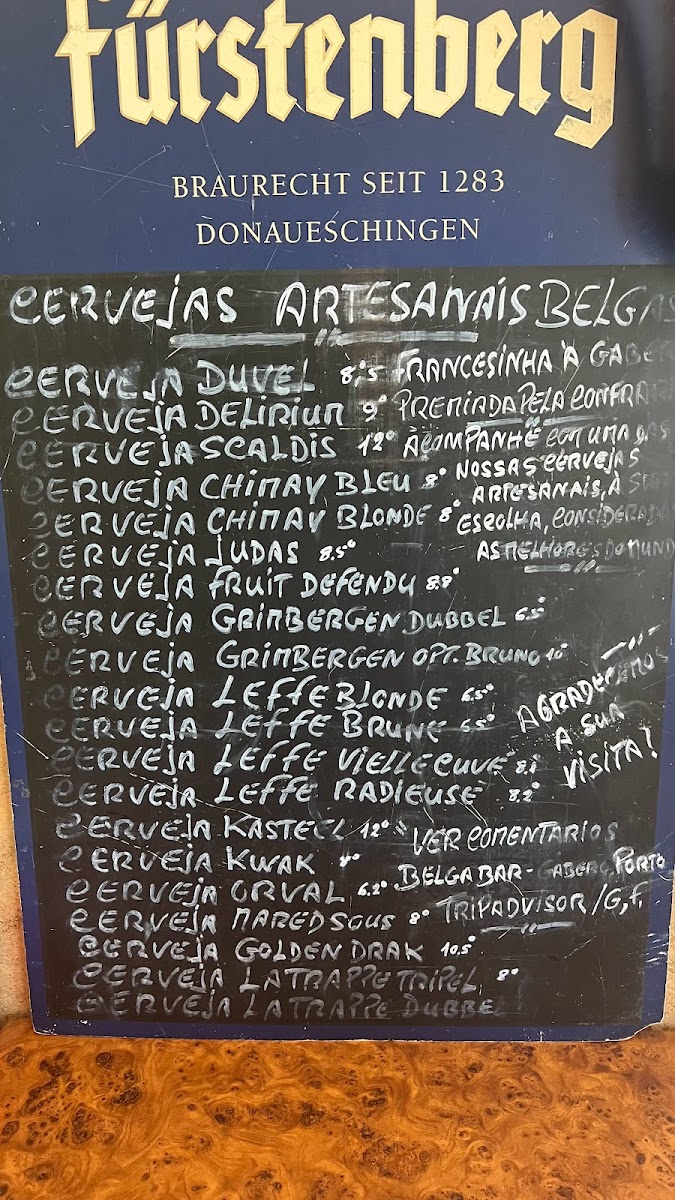 Fürstenberg
BRAURECHT SEIT 1283
DONAUESCHINGEN
CERVEJAS ARTESANAIS BELGAS
CERVEJA DUVEL 8,5°
CERVEJA DELIRIUM 9°
CERVEJA SCALDIS 12°
CERVEJA CHIMAY BLEU 8°
CERVEJA CHIMAY BLONDE 8°
CERVEJA JUDAS 8.5°
CERVEJA FRUIT DEFENDU 8.8°
CERVEJA GRIMBERGEN DUBBEL 6.5°
CERVEJA GRIMBERGEN OPT. BRUNO 10°
CERVEJA LEFFE BLONDE 6.5°
CERVEJA LEFFE BRUNE 6.5°
CERVEJA LEFFE VIELLE CUVE 8.1
CERVEJA LEFFE RADIEUSE 8.2°
CERVEJA KASTEEL 12°
CERVEJA KWAK
CERVEJA ORVAL 6.2°
CERVEJA MAREDSOUS 8°
CERVEJA GOLDEN DRAK 10.5°
CERVEJA LA TRAPPE TRIPEL 8°
CERVEJA LA TRAPPE DUBBEL
FRANCESINHA À GABER
PREMIADA PELA CONFRA
ACOMPANHE COM UMA DAS
NOSSAS CERVEJAS
ARTESANAIS, À SUA
ESCOLHA, CONSIDERADAS
AS MELHORES DO MUND
AGRADECEMOS
A SUA
VISITA!
VER COMENTARIOS
BELGA BAR - GABERG, PORTO
TRIPADVISOR /G,f,